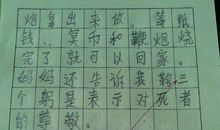 炮拿出来放。等纸
钱、冥币和鞭炮烧
完了就可以回家。
妈妈还告诉我鞠三
个躬是表示对死者
的尊敬。